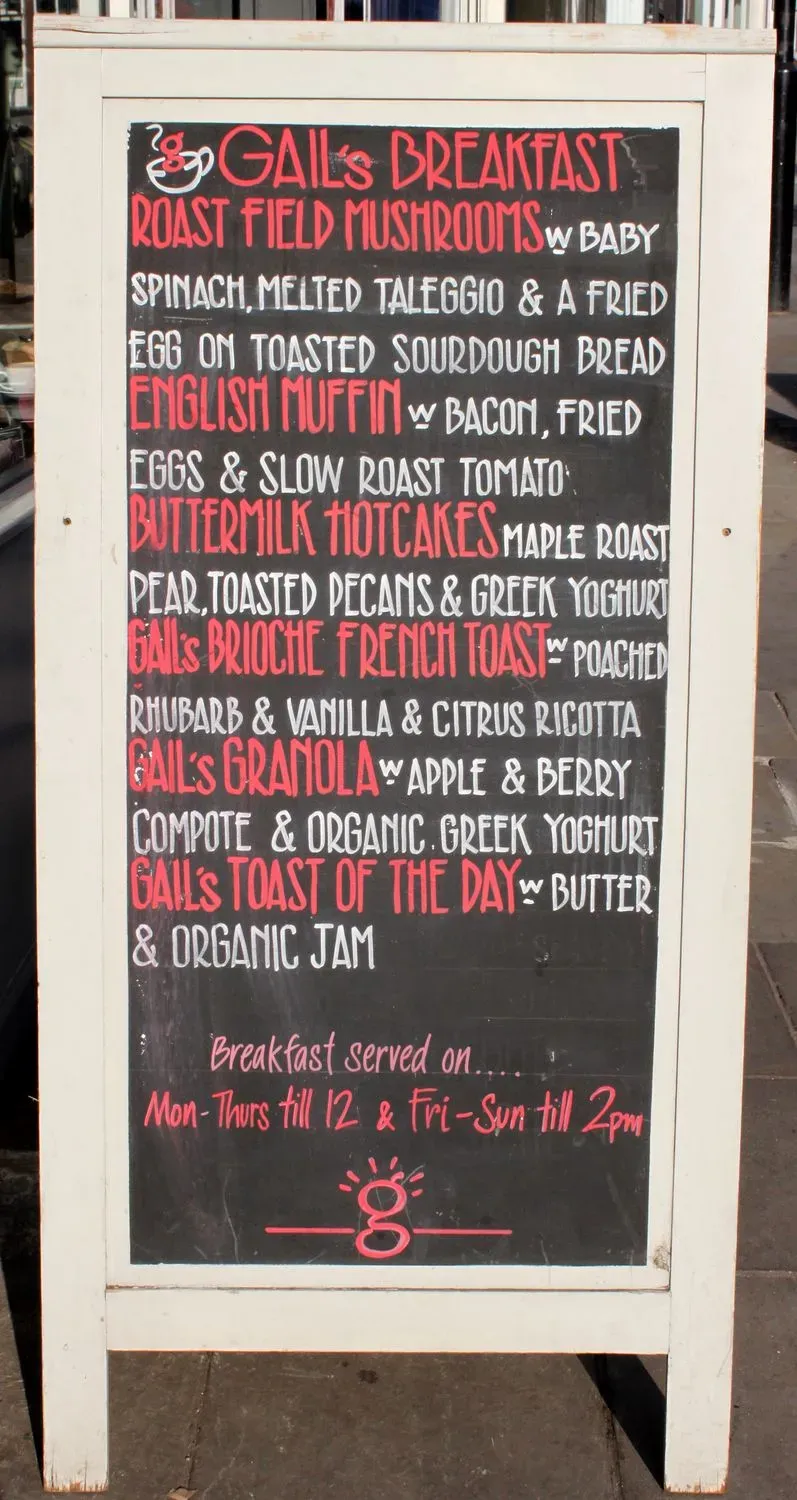 g GAIL's BREAKFAST
ROAST FIELD MUSHROOMS w BABY
SPINACH, MELTED TALEGGIO & A FRIED
EGG ON TOASTED SOURDOUGH BREAD
ENGLISH MUFFIN w BACON, FRIED
EGGS & SLOW ROAST TOMATO
BUTTERMILK HOTCAKES MAPLE ROAST
PEAR, TOASTED PECANS & GREEK YOGHURT
GAIL's BRIOCHE FRENCH TOAST w POACHED
RHUBARB & VANILLA & CITRUS RICOTTA
GAIL's GRANOLA w APPLE & BERRY
COMPOTE & ORGANIC GREEK YOGHURT
GAIL's TOAST OF THE DAY w BUTTER
& ORGANIC JAM
Breakfast served on....
Mon-Thurs till 12 & Fri-Sun till 2pm
g